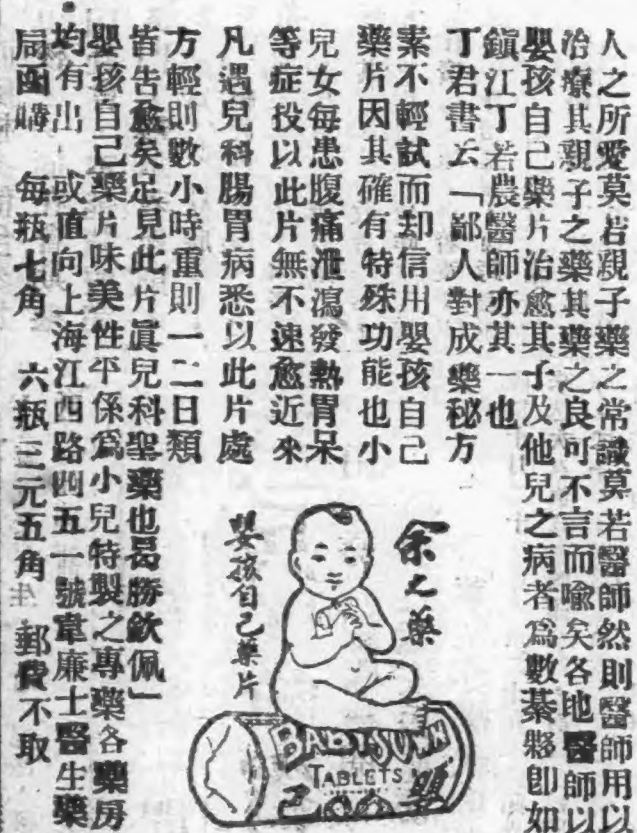 人之所愛莫若親子藥之常識莫若醫師然則醫師用以
治療其親子之藥其藥之良可不言而喻矣各地醫師以
嬰孩自己藥片治愈其子及他兒之病者爲數綦夥卽如
鎭江丁若農醫師亦其一也
丁君書云「鄙人對成藥秘方
素不輕試而却信用嬰孩自己
藥片因其確有特殊功能也小
兒女每患腹痛泄瀉發熱胃呆
等症投以此片無不速愈近來
凡遇兒科腸胃病悉以此片處
方輕則數小時重則一二日類
皆告愈矣足見此片眞兒科聖藥也曷勝欽佩」
嬰孩自己藥片味美性平係爲小兒特製之專藥各藥房
均有出 或直向上海江西路四五一號韋廉士醫生藥
局函購 每瓶七角 六瓶三元五角 郵費不取
余之藥
嬰孩自己藥片
BABY'S OWN
TABLETS
嬰
己